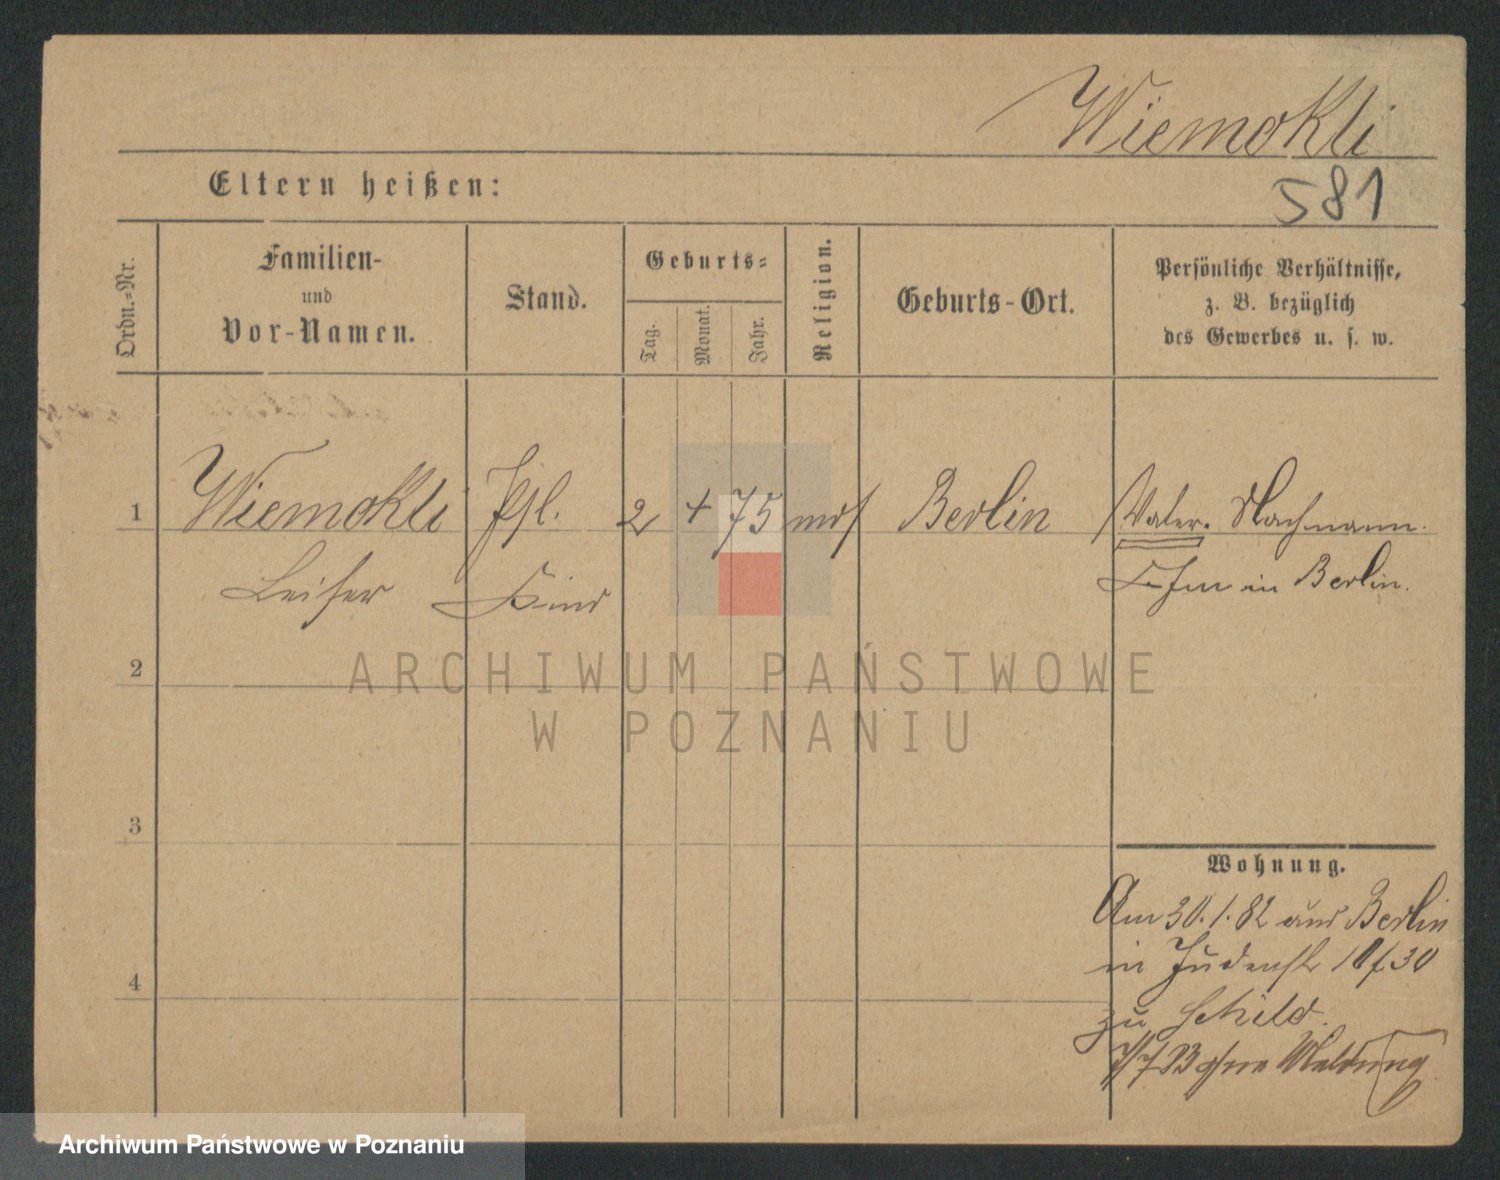 Wiemokli
Eltern heißen:
581
Ordn.-Nr.
Familien-
und
Vor-Namen.
Stand.
Geburts-
Tag.
Monat.
Jahr.
Religion.
Geburts-Ort.
Persönliche Verhältnisse,
z. B. bezüglich
des Gewerbes u. s. w.
1 Wiemokli 2 75 mos Berlin Vater. Nachmann
Leiser Kind in Berlin.
2
ARCHIWUM PAŃSTWOWE
W POZNANIU
3
4
Wohnung.
Am 30.1.82 aus Berlin
in Judenstr 30
zu Schild.
ohne Meldung
Archiwum Państwowe w Poznaniu